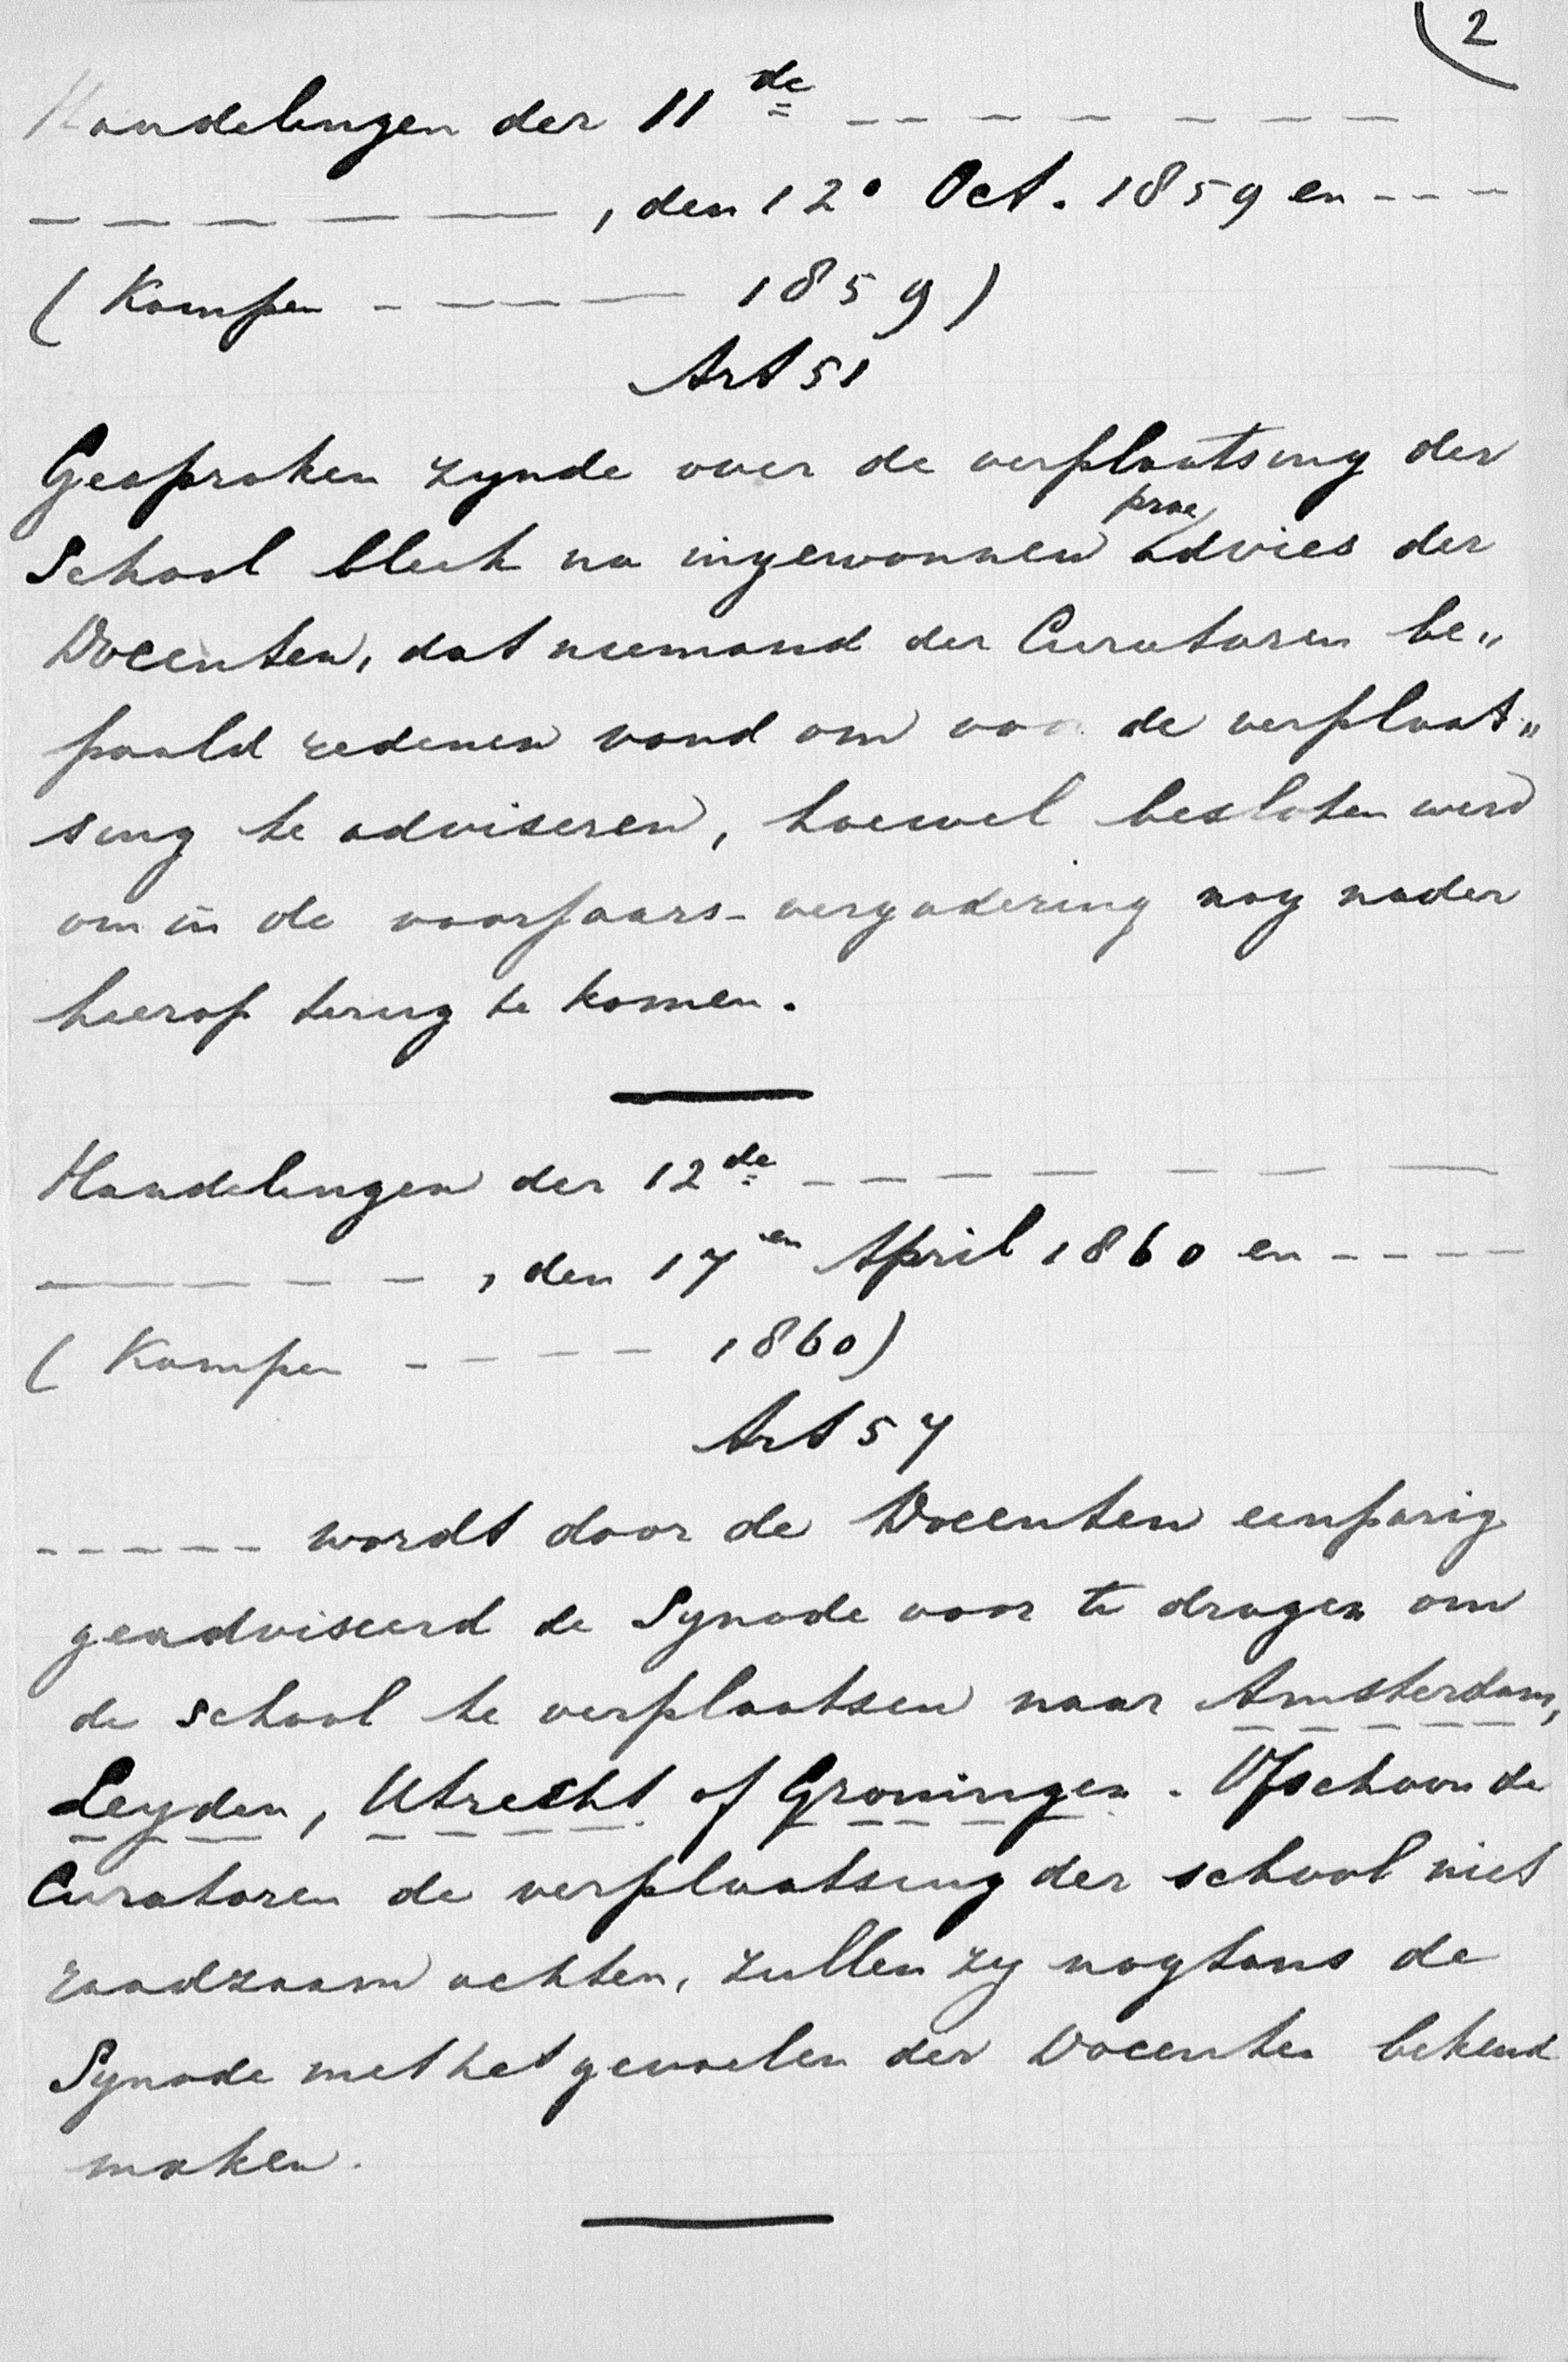 2
Handelingen der 11de - - - - - - -
- - - - - - , den 12e Oct. 1859 en - - -
( Kampen - - - - 1859)
Art 51
Gesproken zynde over de verplaatsing der
School bleek na ingewonnen prae advies der
Docenten, dat niemand der Curatoren be„
paald redenen vond om voor de verplaat„
sing te adviseren, hoewel besloten werd
om in de voorjaars-vergadering nog nader
hierop terug te komen.
Handelingen der 12de - - - - - - -
- - - - - , den 17en April 1860 en - - - -
( Kampen - - - - - 1860)
Art 57
- - - - - wordt door de Docenten eenparig
geadviseerd de Synode voor te dragen om
de school te verplaatsen naar Amsterdam,
Leyden, Utrecht of Groningen. Ofschoon de
Curatoren de verplaatsing der school niet
raadzaam achten, zullen zy nogtans de
Synode met het gevoelen der Docenten bekend
maken.